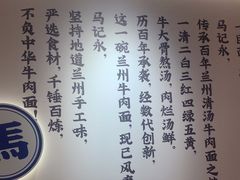 传承百年兰州清汤牛肉面之
一清二白三红四绿五黄,
牛大骨熬汤,肉烂汤鲜。
历百年承袭,经数代创新,
这一碗兰州牛肉面,现已风
马记永,
坚持地道兰州手工味,
严选食材,千锤百炼,
不负中华牛肉面!
馬